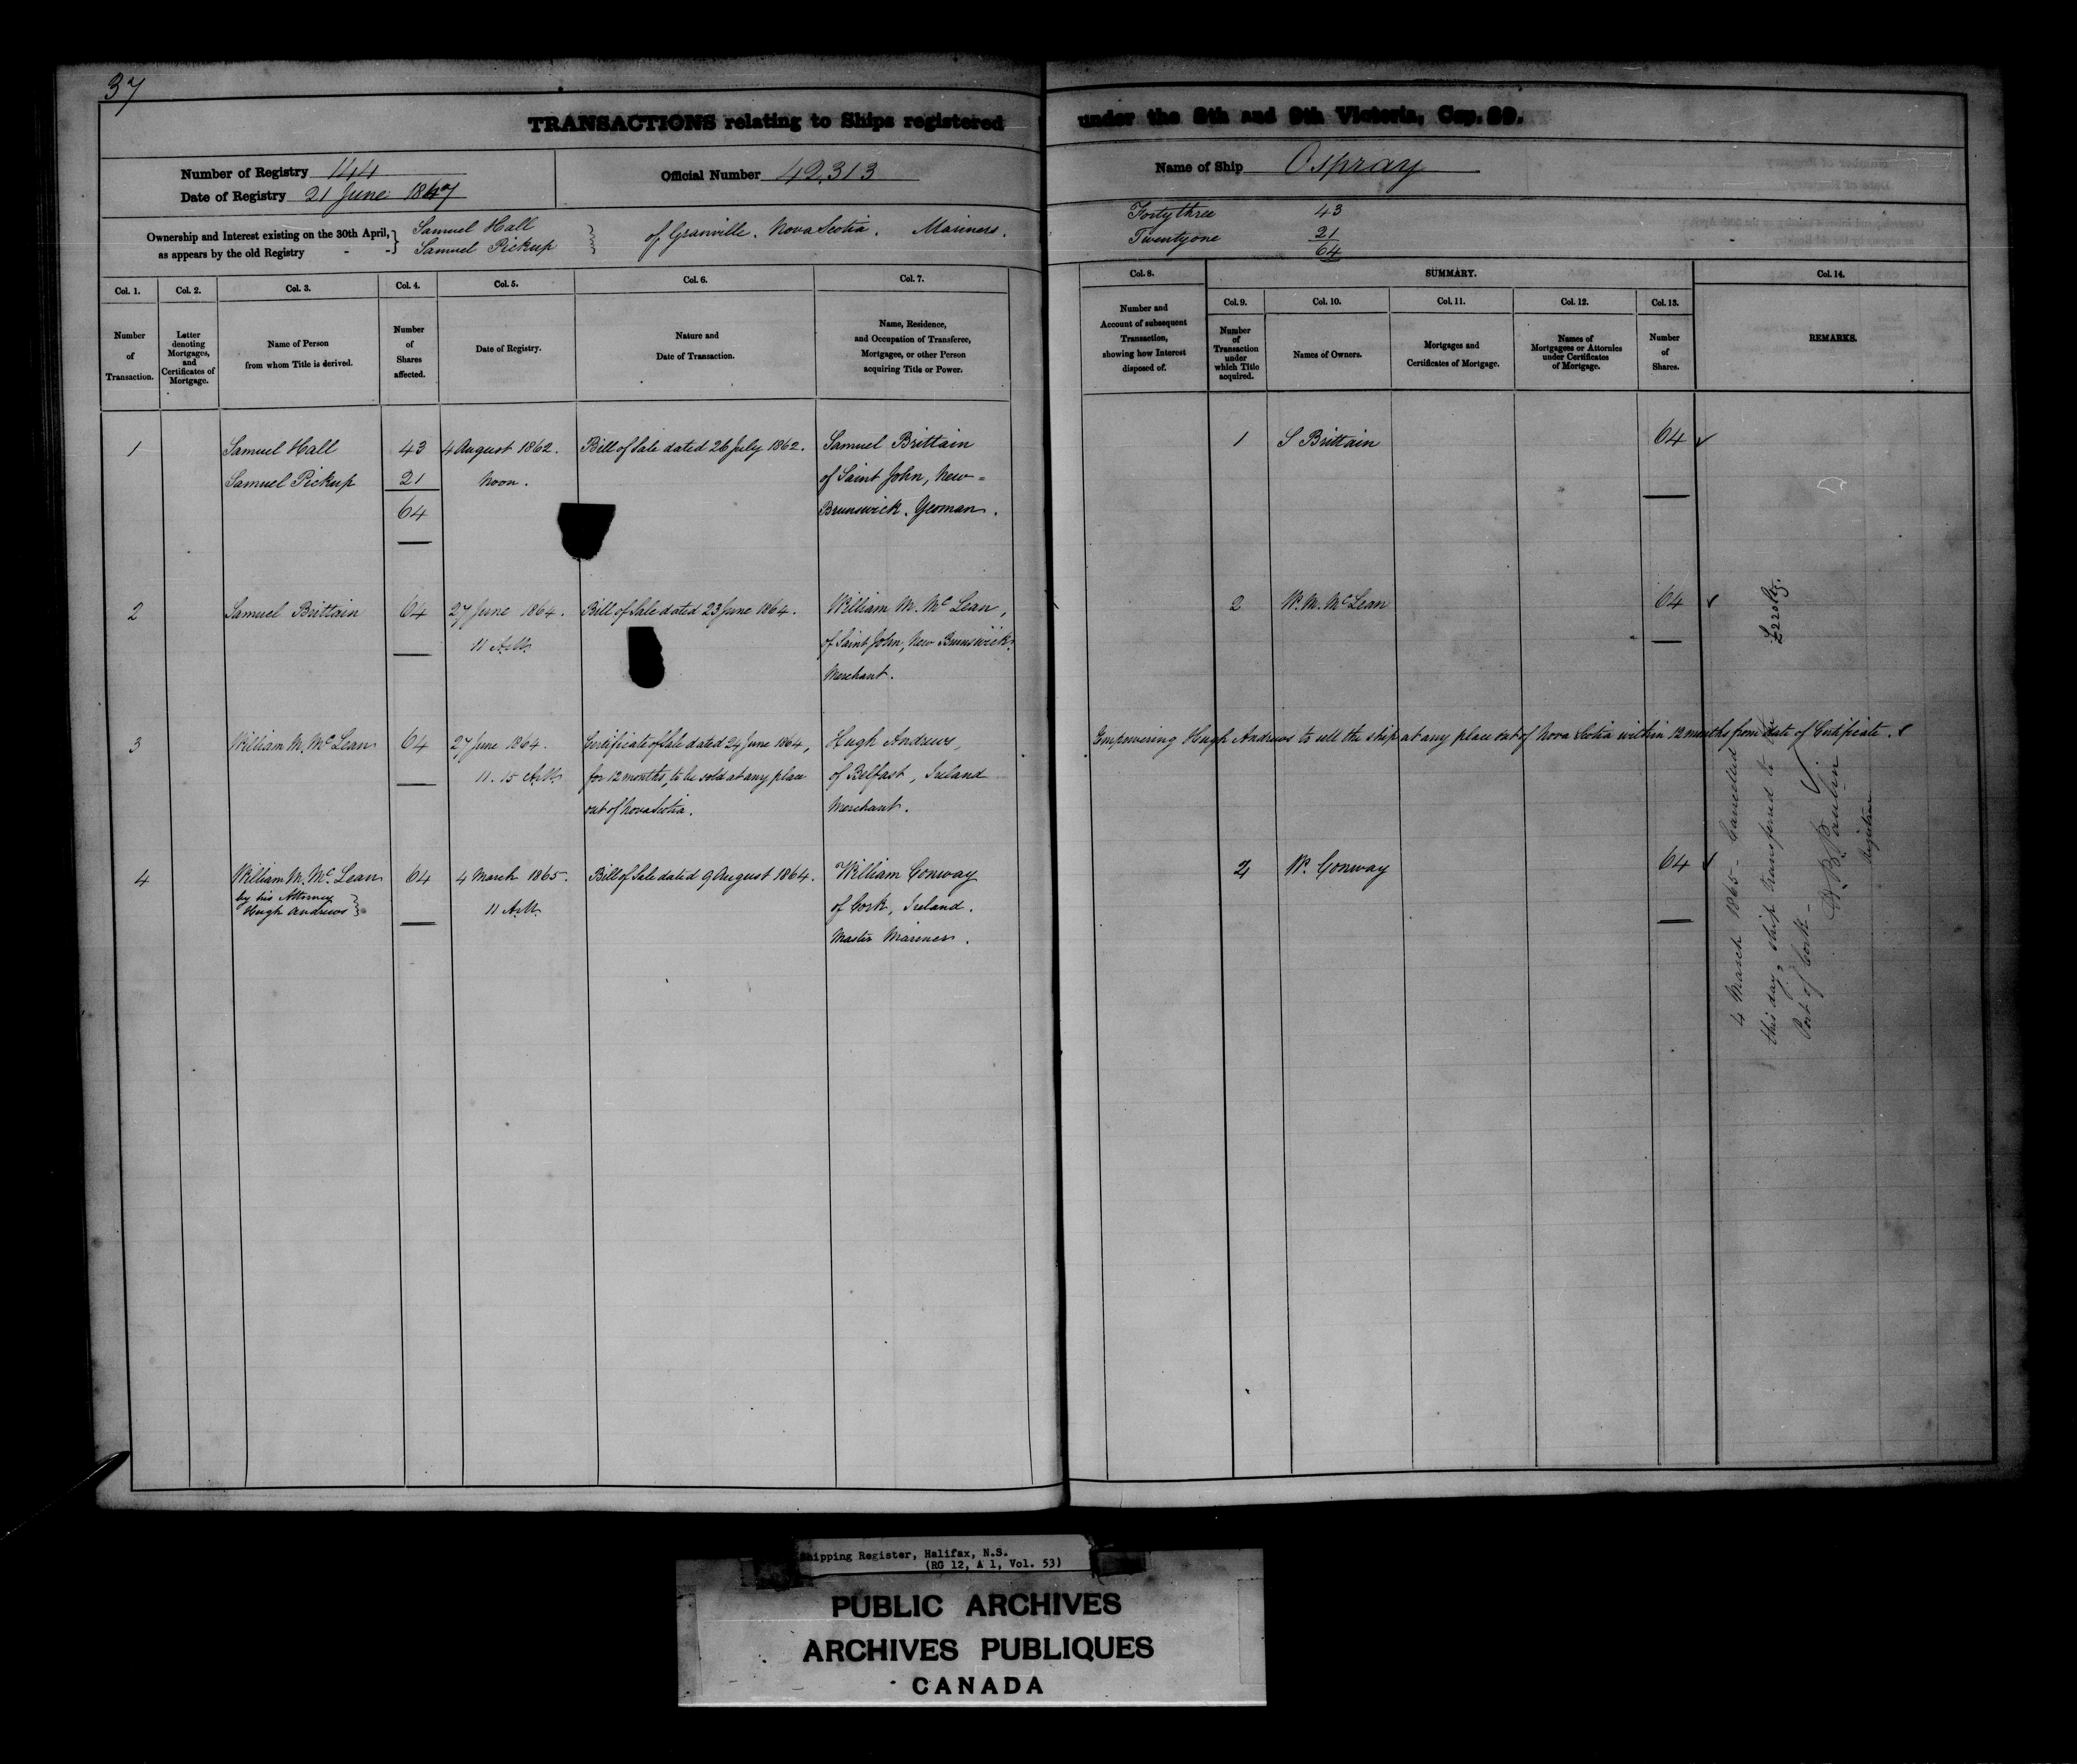 37
TRANSACTIONS relating to Ships registered under the 8th and 9th Victoria, Cap. 89.
Number of Registry 144
Date of Registry 21 June 1847
Official Number 42,313
Name of Ship Ospray
Ownership and Interest existing on the 30th April,
as appears by the old Registry - -
Samuel Hall
Samuel Pickup
of Granville. Nova Scotia. Mariners.
Forty three 43
Twenty one 21
64
Col. 1. Col. 2. Col. 3. Col. 4. Col. 5. Col. 6. Col. 7. Col. 8. SUMMARY. Col. 14.
Col. 9. Col. 10. Col. 11. Col. 12. Col. 13.
Number of Transaction.
Letter denoting Mortgages, and Certificates of Mortgage.
Name of Person from whom Title is derived.
Number of Shares affected.
Date of Registry.
Nature and Date of Transaction.
Name, Residence, and Occupation of Transferee, Mortgagee, or other Person acquiring Title or Power.
Number and Account of subsequent Transaction, showing how Interest disposed of.
Number of Transaction under which Title acquired.
Names of Owners.
Mortgages and Certificates of Mortgage.
Names of Mortgagees or Attornies under Certificates of Mortgage.
Number of Shares.
REMARKS.
1 Samuel Hall 43 4 August 1862. Bill of Sale dated 26 July 1862. Samuel Brittain 1 S Brittain 64
Samuel Pickup 21 Noon. of Saint John, New=
64 Brunswick. Yeoman.
2 Samuel Brittain 64 27 June 1864. Bill of Sale dated 23 June 1864. William M. McLean, 2 W. M. McLean 64
11 A.M. of Saint John, New Brunswick.
Merchant.
3 William M. McLean 64 27 June 1864. Certificate of Sale dated 24 June 1864, Hugh Andrews, Empowering Hugh Andrews to sell the ship at any place out of Nova Scotia within 12 months from date of Certificate.
11.15 A.M. for 12 months, to be sold at any place of Belfast, Ireland
out of Nova Scotia. Merchant.
4 William M. McLean 64 4 March 1865. Bill of Sale dated 9 August 1864. William Conway 4 W. Conway 64
by his Attorney 11 A.M. of Cork, Ireland.
Hugh Andrews Master Mariner.
4 March 1865 - Cancelled
this day, ship transferred to the
Port of Cork -
Registrar
Shipping Register, Halifax, N.S.
(RG 12, A 1, Vol. 53)
PUBLIC ARCHIVES
ARCHIVES PUBLIQUES
CANADA